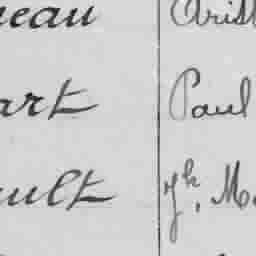 neau Arist
art Paul
ult Jh. M